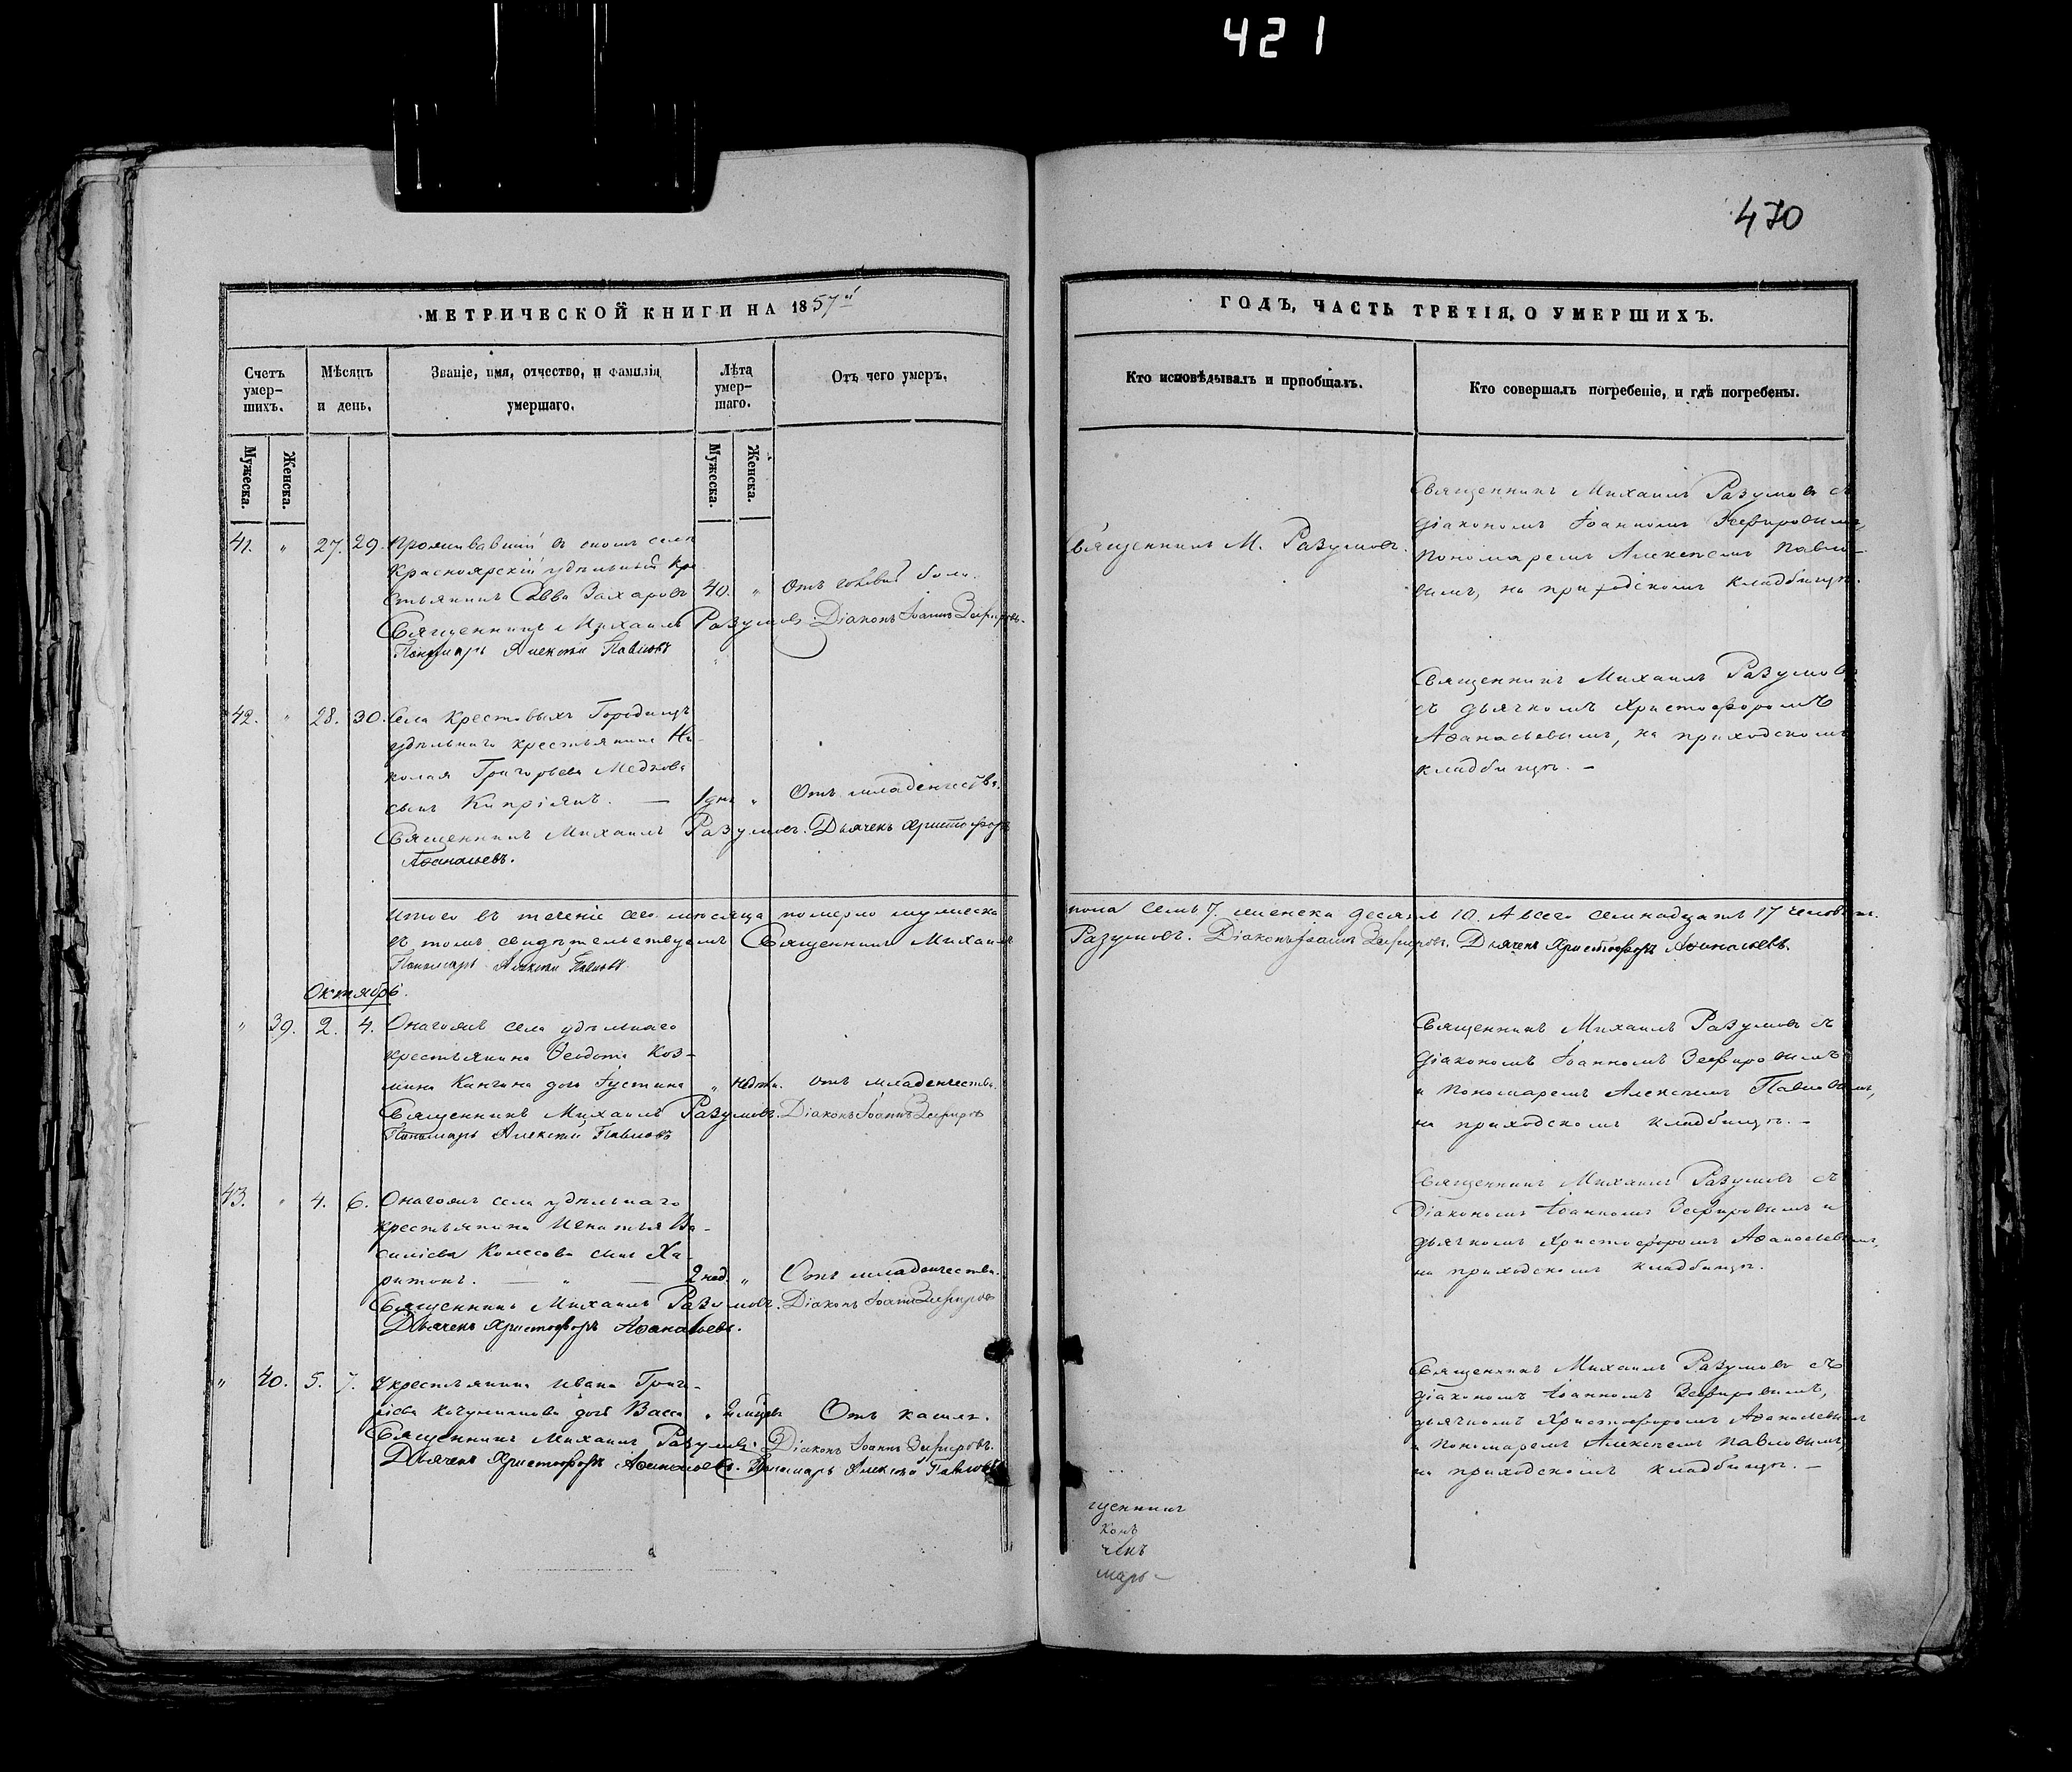 421
470
МЕТРИЧЕСКОЙ КНИГИ НА 1857й
Счетъ умер-шихъ.
Мѣсяцъ и день.
Званіе, имя, отчество, и фамилія умершаго.
Лѣта умер-шаго.
Отъ чего умеръ.
Мужеска.
Женска.
Мужеска.
Женска.
41. " 27. 29. Проживавшій въ ономъ селѣ
Красноярскій удѣльный кре
стьянинъ Савва Захаровъ 40. " Отъ головной боли.
Священникъ Михаилъ Разумовъ Діаконъ Іоаннъ Зефировъ.
Пономарь Алексѣй Павловъ
42. " 28. 30. Села Крестовыхъ Городищъ
удѣльнаго крестьянина Ни-
колая Григорьева Медкова
сынъ Кипріянъ. — 1 дня " Отъ младенчества.
Священникъ Михаилъ Разумовъ. Дьячекъ Христофоръ
Аѳанасьевъ.
Итого въ теченіе сего мѣсяца померло мужеска
въ томъ свидѣтельствуемъ Священникъ Михаилъ
Пономарь Алексѣй Павловъ
Октябрь.
" 39. 2. 4. Онагожъ села удѣльнаго
крестьянина Ѳеодота Коз-
мина Кангина дочь Іустина " нѣтъ. отъ младенчества.
Священникъ Михаилъ Разумовъ. Діаконъ Іоаннъ Зефировъ
Пономарь Алексѣй Павловъ
43. " 4. 6. Онагожъ села удѣльнаго
крестьянина Игнатья Ва-
силіева Колесова сынъ Ха-
ритонъ. — " — 2 нед. " Отъ младенчества.
Священникъ Михаилъ Разумовъ. Діаконъ Іоаннъ Зефировъ
Дьячекъ Христофоръ Аѳанасьевъ.
" 40. 5. 7. крестьянина Ивана Григо-
ріева дочь Васса " Отъ кашля.
Священникъ Михаилъ Разумовъ. Діаконъ Іоаннъ Зефировъ.
Дьячекъ Христофоръ Аѳанасьевъ. Пономарь Алексѣй Павловъ
ГОДЪ, ЧАСТЬ ТРЕТІЯ, О УМЕРШИХЪ.
Кто исповѣдывалъ и пріобщалъ.
Кто совершалъ погребеніе, и гдѣ погребены.
Священникъ М. Разумовъ.
Священникъ Михаилъ Разумовъ съ
діакономъ Іоанномъ Зефировымъ,
пономаремъ Алексѣемъ Павло-
вымъ, на приходскомъ кладбищѣ.
Священникъ Михаилъ Разумовъ
съ дьячкомъ Христофоромъ
Аѳанасьевымъ, на приходскомъ
кладбищѣ. —
пола семь 7. женска десять 10. А всего семнадцать 17 человѣкъ.
Разумовъ. Діаконъ Іоаннъ Зефировъ. Дьячекъ Христофоръ Аѳанасьевъ.
Священникъ Михаилъ Разумовъ съ
діакономъ Іоанномъ Зефировымъ
и пономаремъ Алексѣемъ Павловымъ,
на приходскомъ кладбищѣ. —
Священникъ Михаилъ Разумовъ съ
Діакономъ Іоанномъ Зефировымъ и
дьячкомъ Христофоромъ Аѳанасьевымъ,
на приходскомъ кладбищѣ.
Священникъ Михаилъ Разумовъ съ
діакономъ Іоанномъ Зефировымъ,
дьячкомъ Христофоромъ Аѳанасьевымъ
и пономаремъ Алексѣемъ Павловымъ,
на приходскомъ кладбищѣ. —
щенникъ
конъ
чекъ
марь